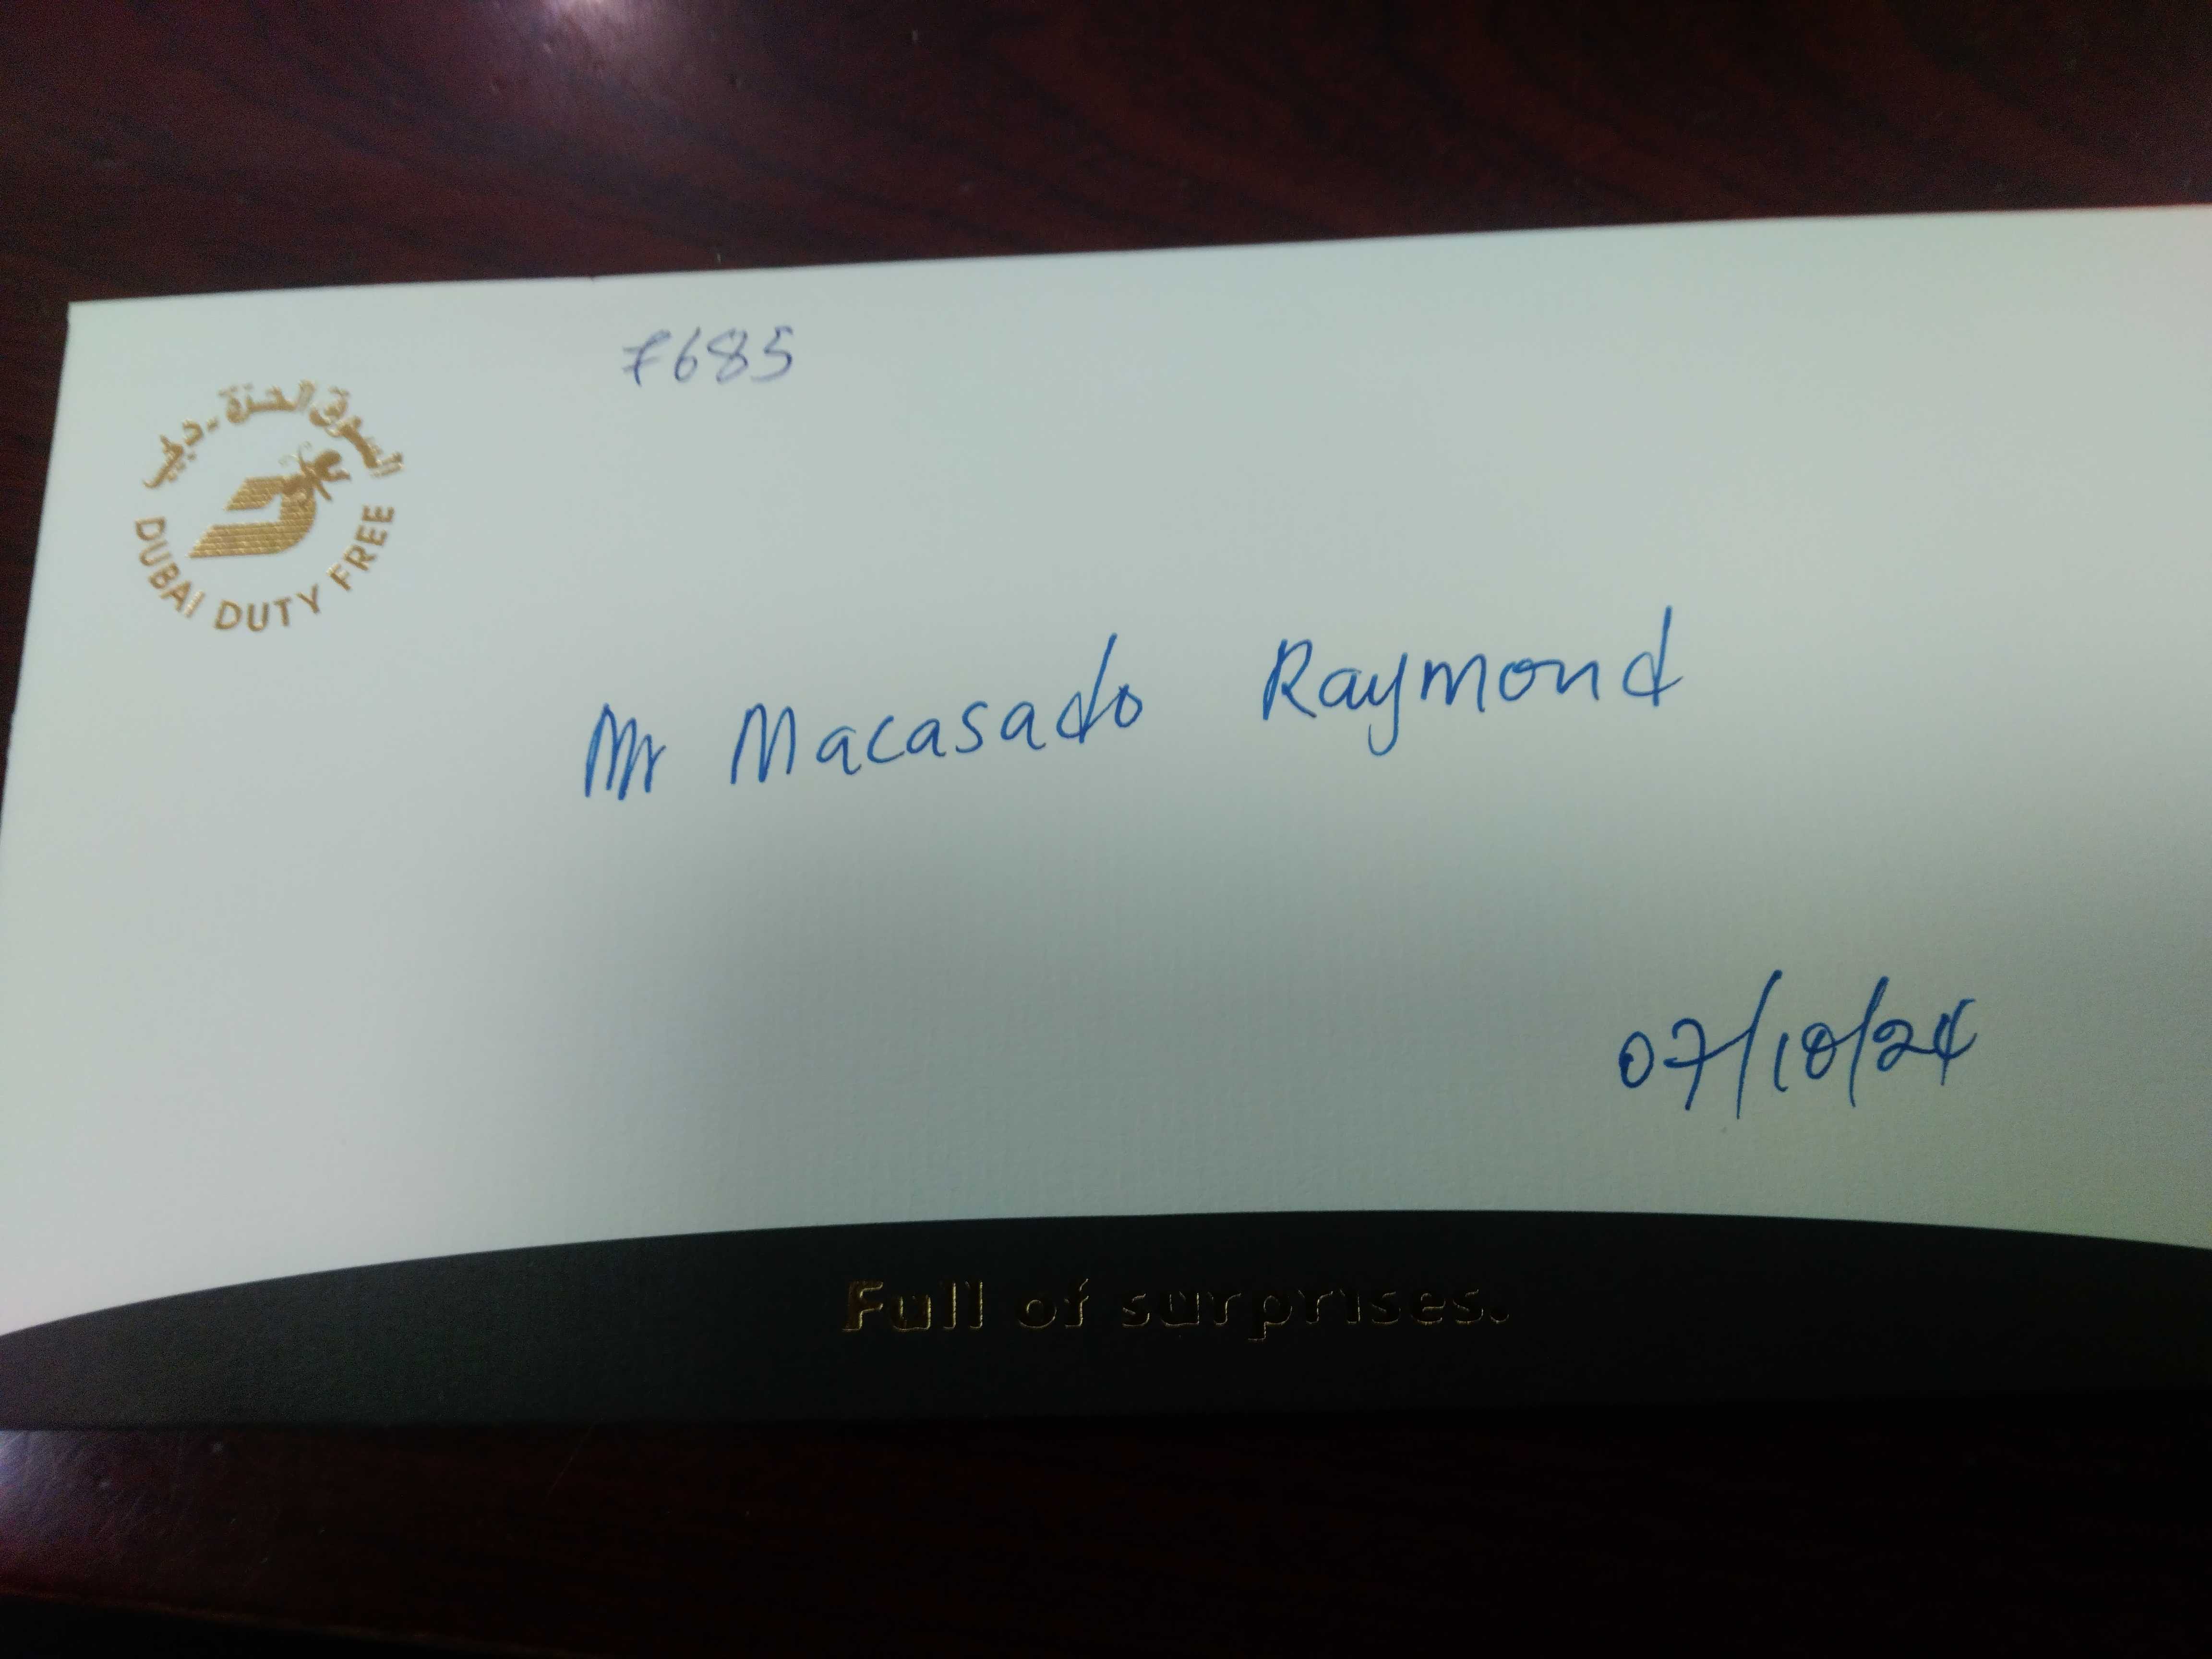 7685
السوق الحرة - دبي
DUBAI DUTY FREE
Mr Macasado Raymond
07/10/24
Full of surprises.